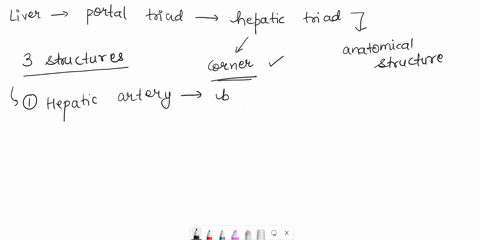 Liver → portal triad → hepatic triad
3 structures corner ✓ anatomical structure
① Hepatic artery → b